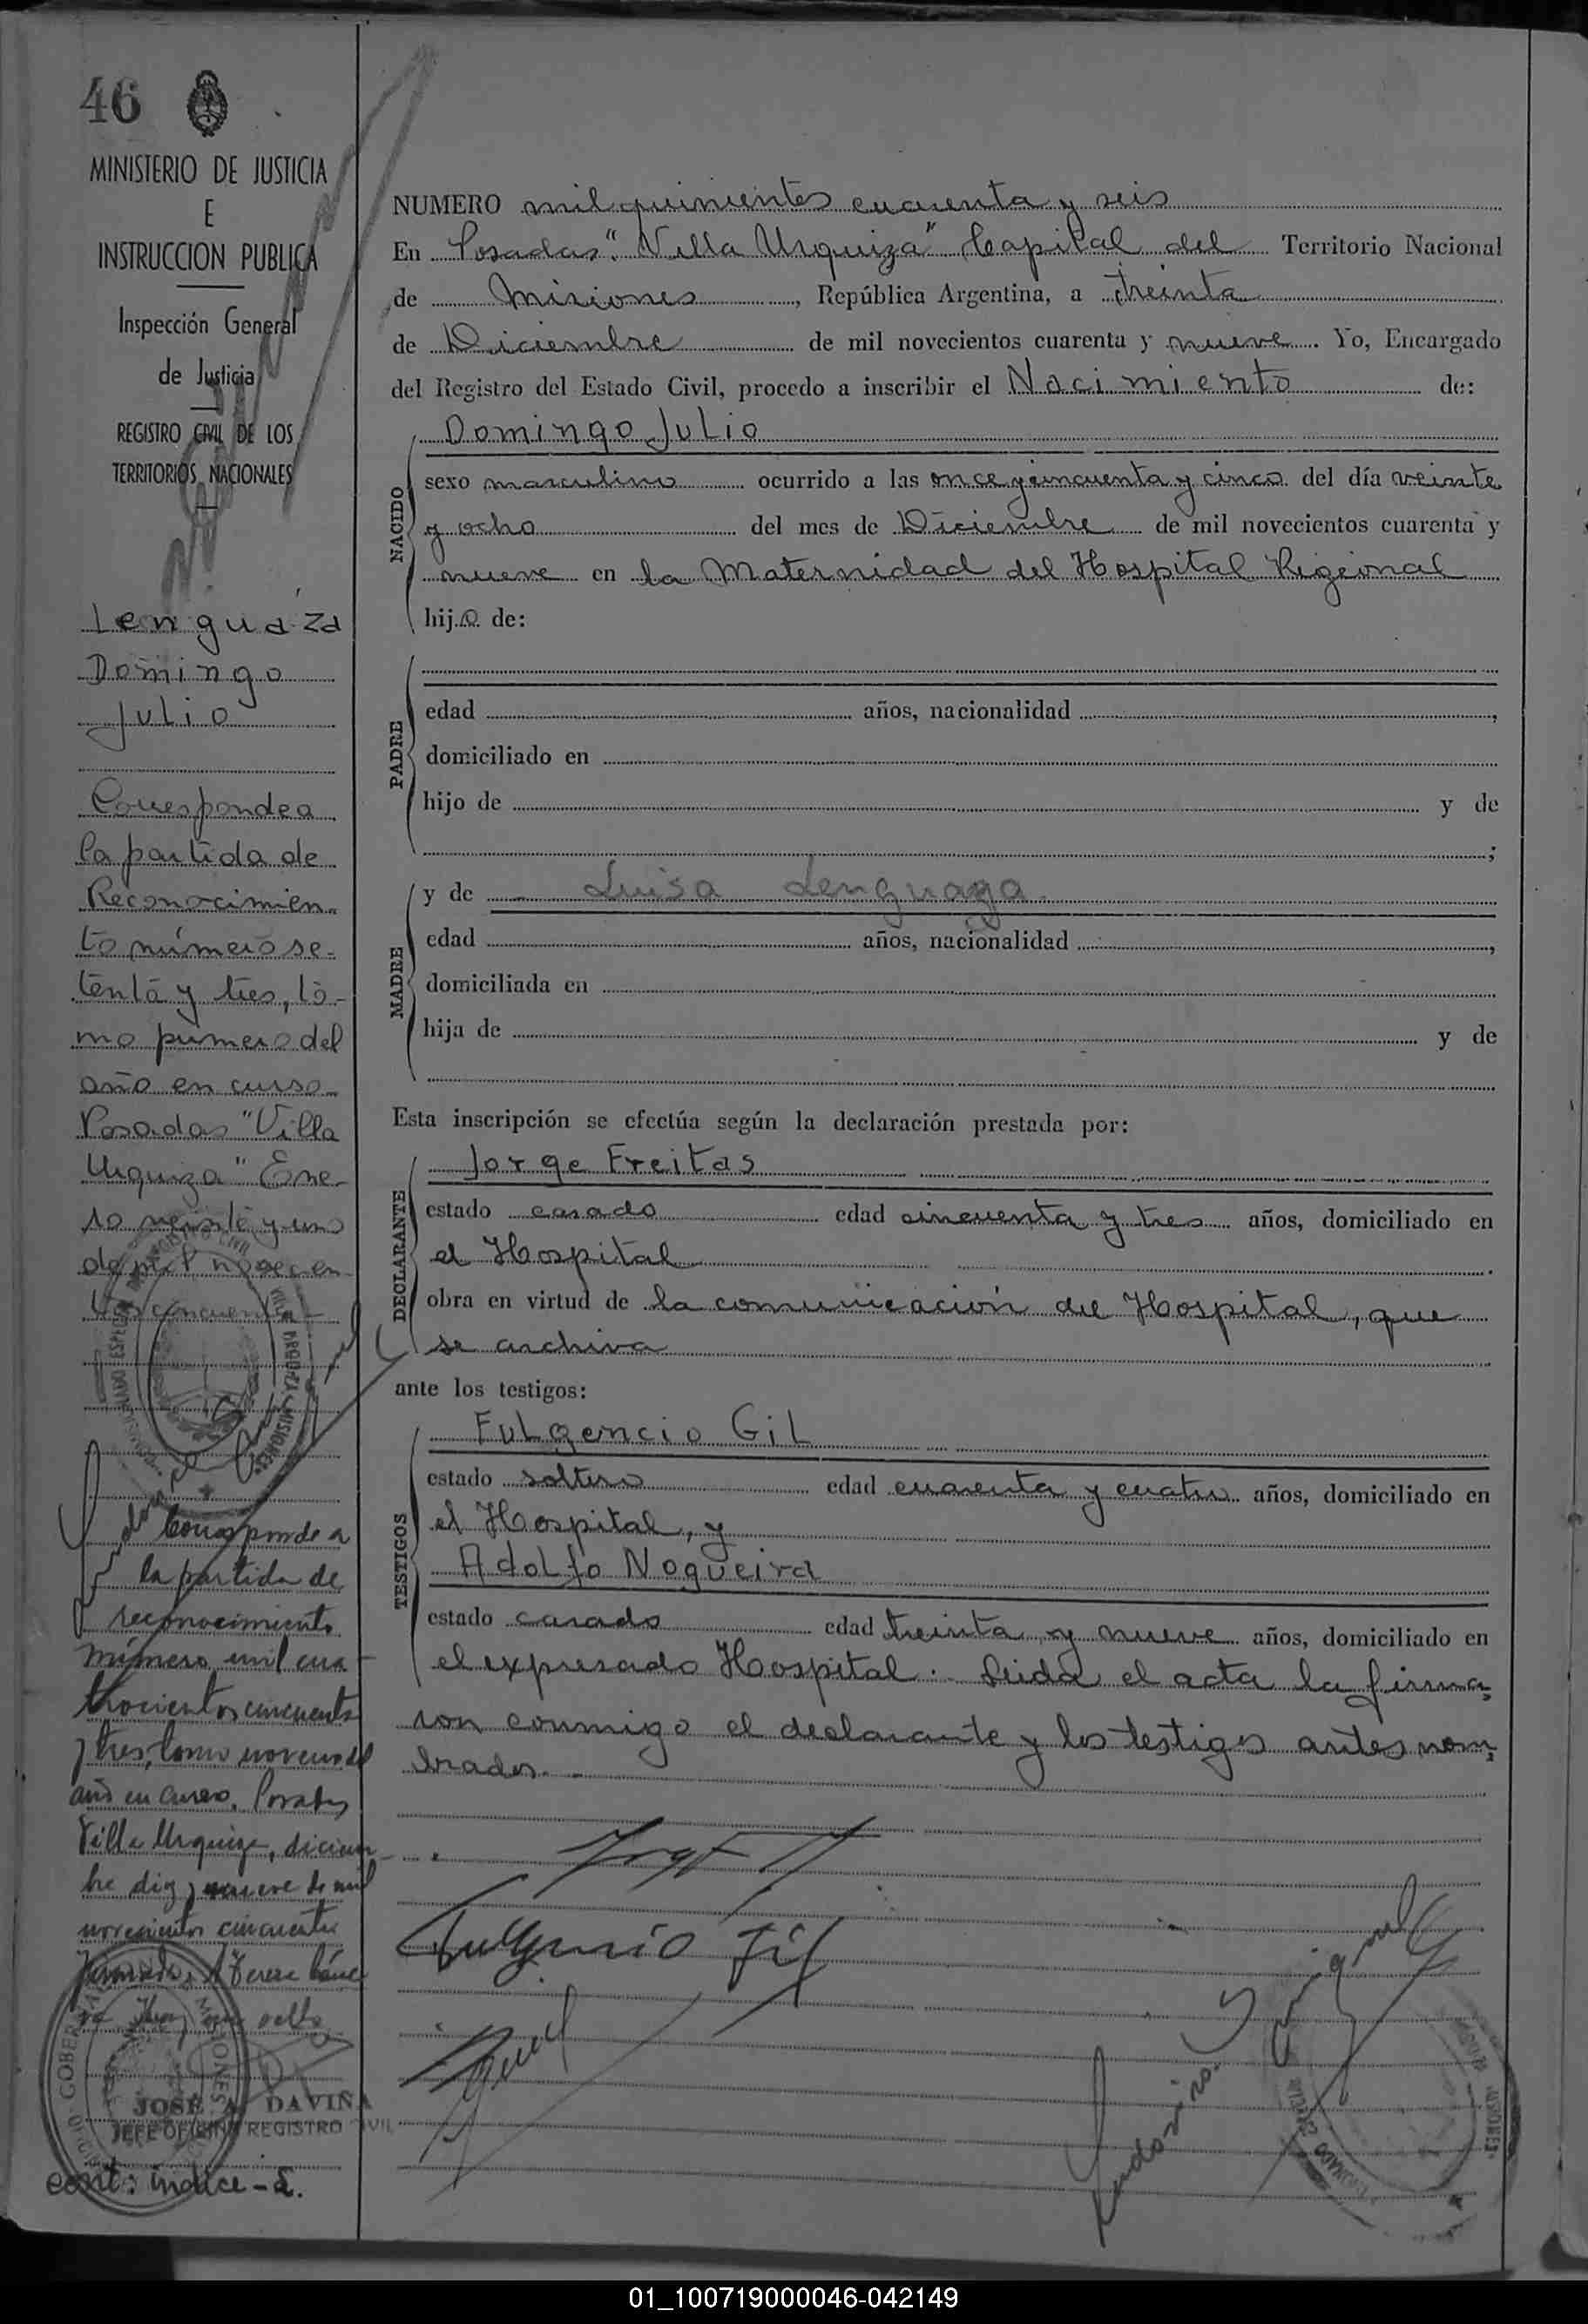 46
MINISTERIO DE JUSTICIA
E
INSTRUCCION PUBLICA
Inspección General
de Justicia
REGISTRO CIVIL DE LOS
TERRITORIOS NACIONALES
Lenguaza
Domingo
Julio
Corresponde a
la partida de
Reconocimien-
to número se-
tenta y tres, to-
mo primero del
año en curso.
Posadas "Villa
Urquiza" Ene-
ro veinte y uno
de mil novecien-
tos cincuenta
Corresponde a
la partida de
reconocimiento
número mil cua-
trocientos cincuenta
y tres, tomo noveno del
año en curso. Posadas
Villa Urquiza, diciem-
bre diez y nueve de mil
novecientos cincuenta
JOSÉ A. DAVIÑA
JEFE OFICINA REGISTRO CIVIL
cont: indice - a.
NUMERO mil quinientos cuarenta y seis
En Posadas "Villa Urquiza" Capital del Territorio Nacional
de Misiones, República Argentina, a treinta
de Diciembre de mil novecientos cuarenta y nueve. Yo, Encargado
del Registro del Estado Civil, procedo a inscribir el Nacimiento de:
NACIDO
Domingo Julio
sexo masculino ocurrido a las once y cincuenta y cinco del día veinte
y ocho del mes de Diciembre de mil novecientos cuarenta y
nueve en la Maternidad del Hospital Rigeional
hijo de:
PADRE
edad años, nacionalidad ,
domiciliado en
hijo de y de
;
MADRE
y de Luisa Lenguaza.
edad años, nacionalidad ,
domiciliada en
hija de y de
Esta inscripción se efectúa según la declaración prestada por:
DECLARANTE
Jorge Freitas
estado casado edad cincuenta y tres años, domiciliado en
el Hospital.
obra en virtud de la comunicación del Hospital, que
se archiva
ante los testigos:
TESTIGOS
Fulgencio Gil
estado soltero edad cuarenta y cuatro años, domiciliado en
el Hospital, y
Adolfo Nogueira
estado casado edad treinta y nueve años, domiciliado en
el expresado Hospital. Leida el acta la firma-
ron conmigo el declarante y los testigos antes nom-
brados.
Fulgencio Gil
01_100719000046-042149